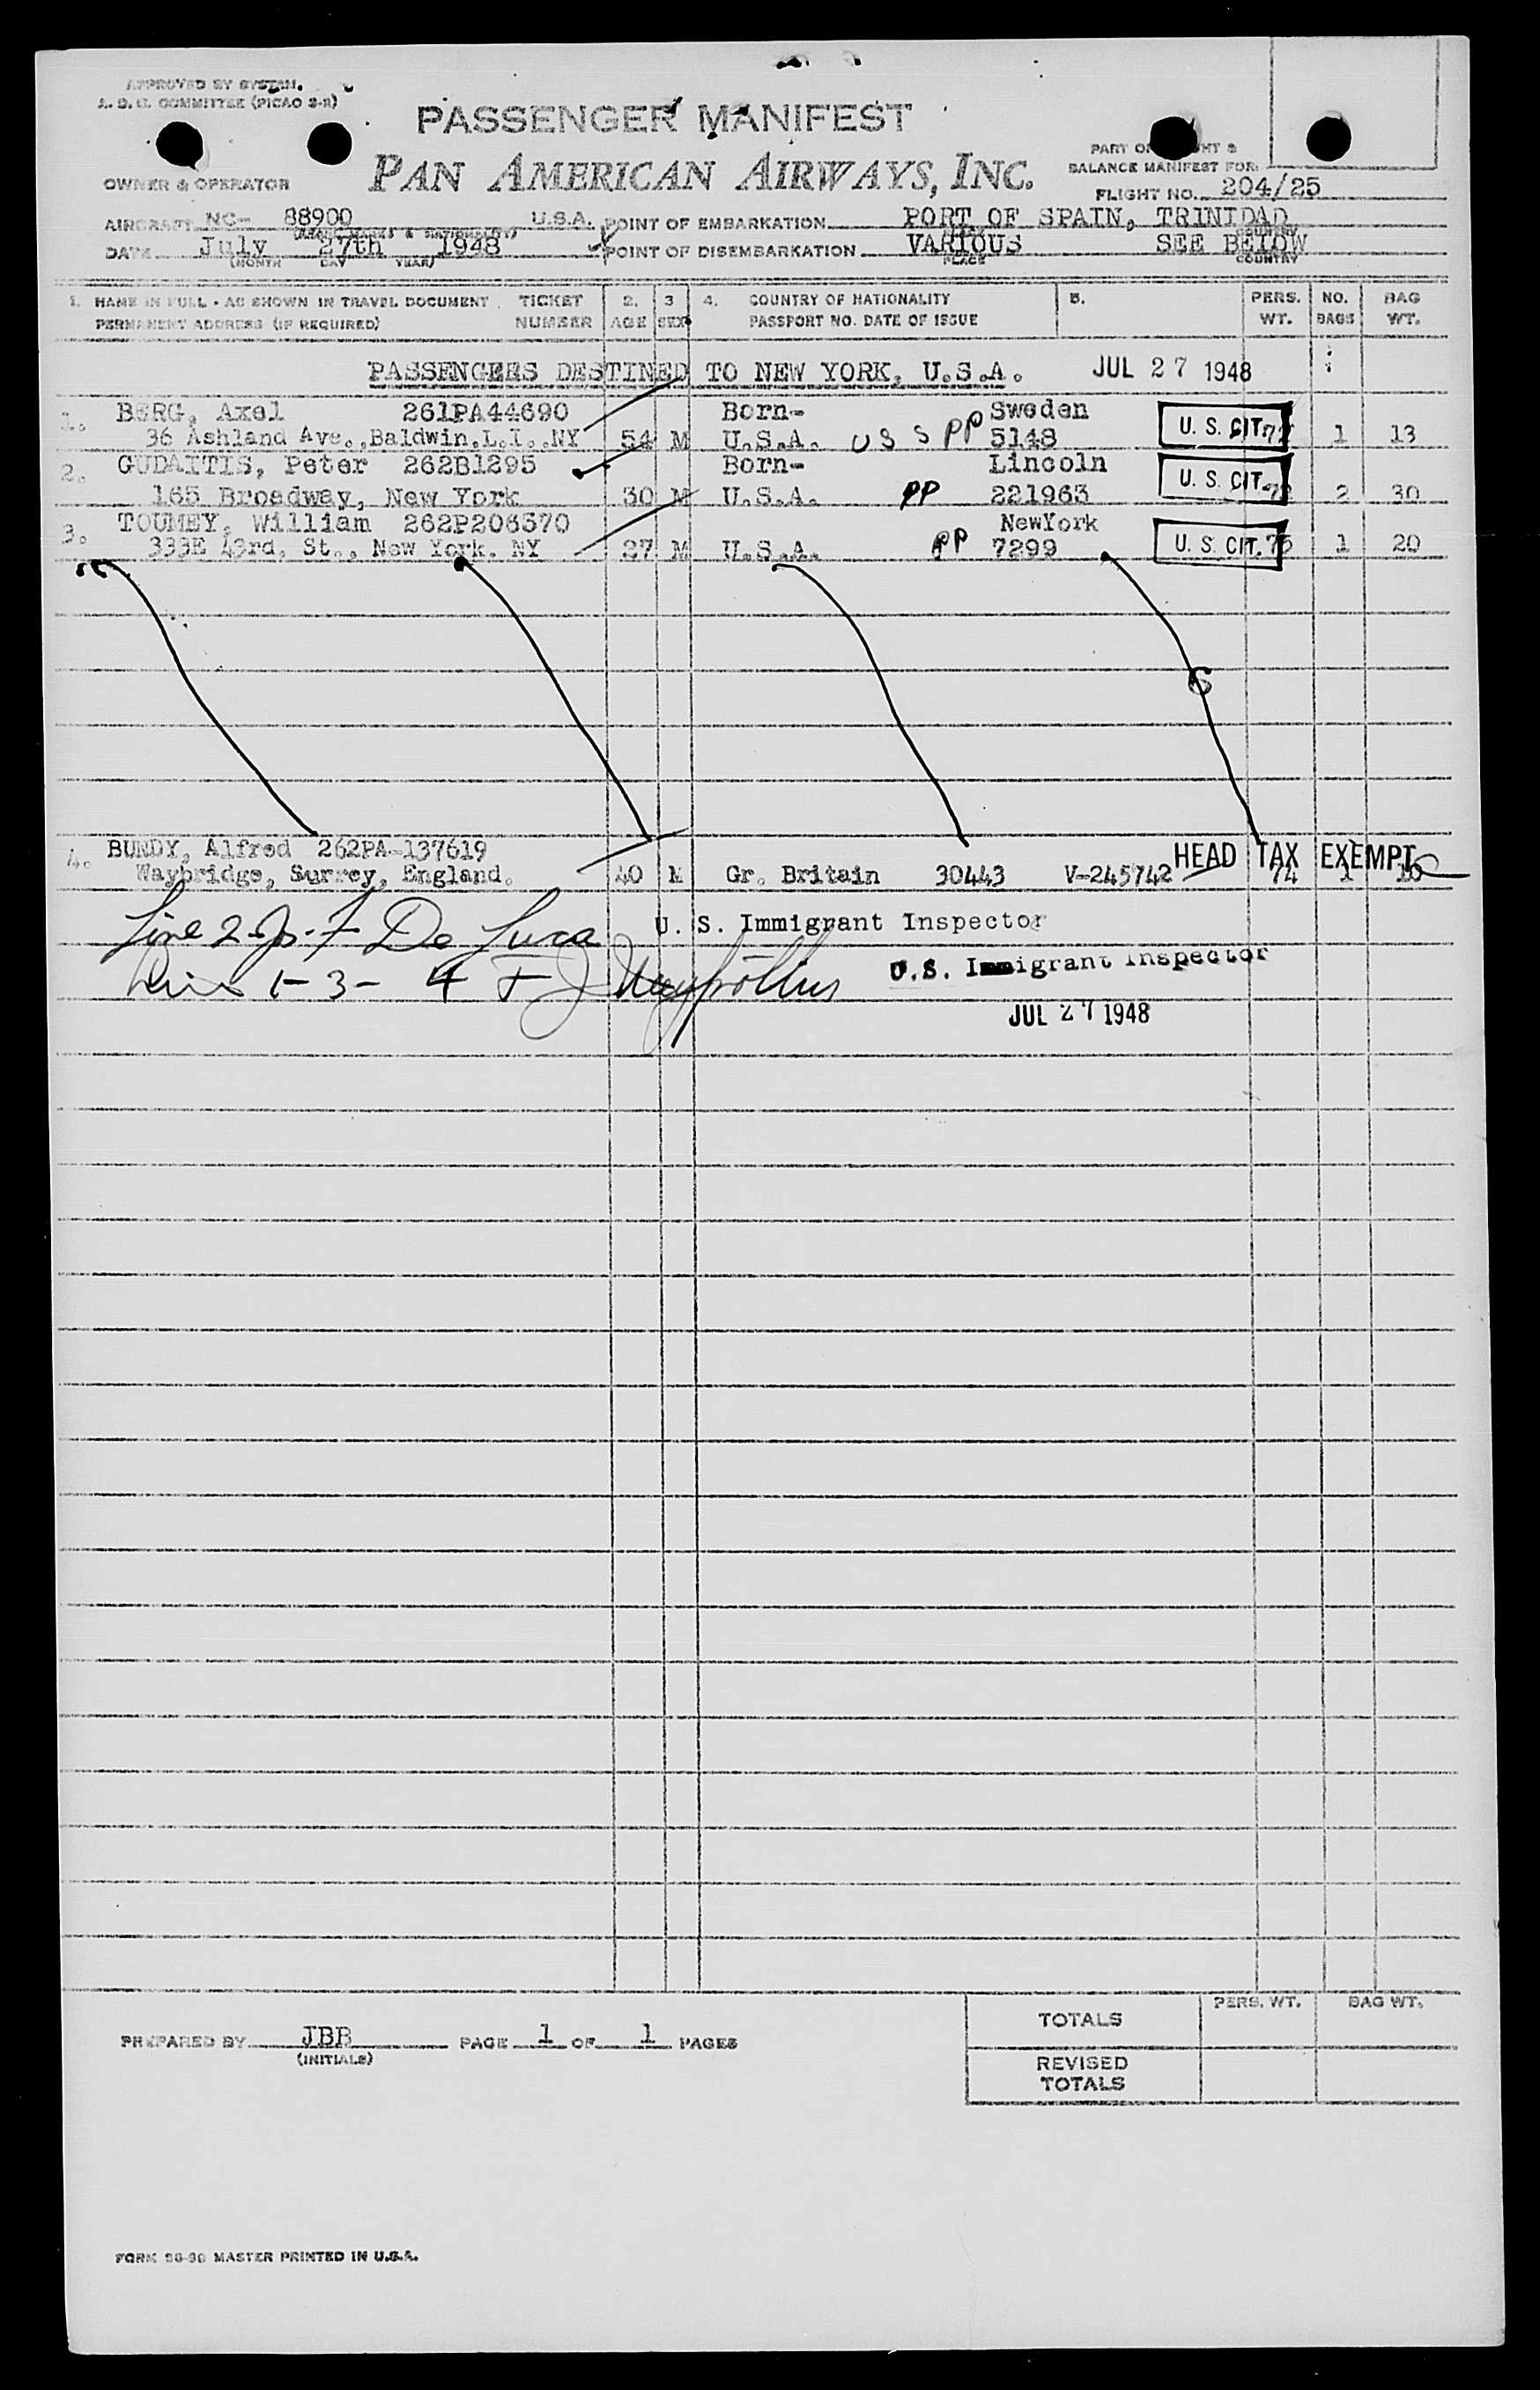 APPROVED BY SYSTEM.
A. S. C. COMMITTEE (PICAO 2-R)
PASSENGER MANIFEST
PAN AMERICAN AIRWAYS, INC.
OWNER & OPERATOR
PART OF HT &
BALANCE MANIFEST FOR
FLIGHT NO. 204/25
AIRCRAFT NC- 88900 U.S.A. POINT OF EMBARKATION PORT OF SPAIN, TRINIDAD
DATE July 27th 1948 POINT OF DISEMBARKATION VARIOUS SEE BELOW
(MONTH DAY YEAR) PLACE COUNTRY
1. NAME IN FULL - AS SHOWN IN TRAVEL DOCUMENT TICKET 2. 3 4. COUNTRY OF NATIONALITY 5. PERS. NO. BAG
PERMANENT ADDRESS (IF REQUIRED) NUMBER AGE SEX PASSPORT NO. DATE OF ISSUE WT. BAGS WT.
PASSENGERS DESTINED TO NEW YORK, U.S.A. JUL 27 1948
1. BERG, Axel 261PA44690 Born- Sweden
36 Ashland Ave., Baldwin, L.I., NY 54 M U.S.A. U S S PP 5148 U. S. CIT. 1 13
2. GUDAITIS, Peter 262B1295 Born- Lincoln
165 Broadway, New York 30 M U.S.A. PP 221963 U. S. CIT. 2 30
3. TOUMEY, William 262P206570 NewYork
333E 43rd. St., New York. NY 27 M U.S.A. PP 7299 U. S. CIT. 75 1 20
4. BUNDY, Alfred 262PA-137619 HEAD TAX EXEMPT
Waybridge, Surrey, England. 40 M Gr. Britain 30443 V-245742 74 1
Line 2 De Luca U. S. Immigrant Inspector
Lines 1-3-4 U.S. Immigrant Inspector
JUL 27 1948
PERS. WT. BAG WT.
TOTALS
PREPARED BY JBB PAGE 1 OF 1 PAGES
(INITIALS)
REVISED
TOTALS
FORM 36-98 MASTER PRINTED IN U.S.A.